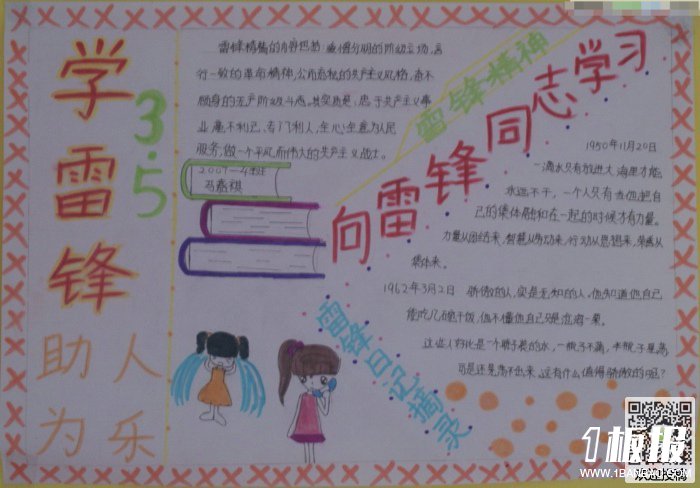 学雷锋
3.5
助人
为乐
雷锋精神的内容包括:爱憎分明的阶级立场,言
行一致的革命精神,公而忘私的共产主义风格,奋不
顾身的无产阶级斗志。其实质是,忠于共产主义事
业,毫不利己,专门利人,全心全意为人民
服务,做一个平凡而伟大的共产主义战士。
雷锋精神
向雷锋同志学习
1950年11月20日
一滴水只有放进大海里才能
永远不干,一个人只有当他把自
己的集体融和在一起的时候才有力量。
力量从团结来,智慧从劳动来,行动从思想来,荣誉从
集体来。
1962年3月2日 骄傲的人,实是无知的人。他不知道他自己
能吃几碗干饭,他不懂他自己只是沧海一粟。
这些人好比是一个瓶子装的水,一瓶子不满,半瓶子晃荡
可是还是晃不出来。这有什么值得骄傲的呢?
雷锋日记摘录
1板报
WWW.1BANBAO.COM
欢迎投稿